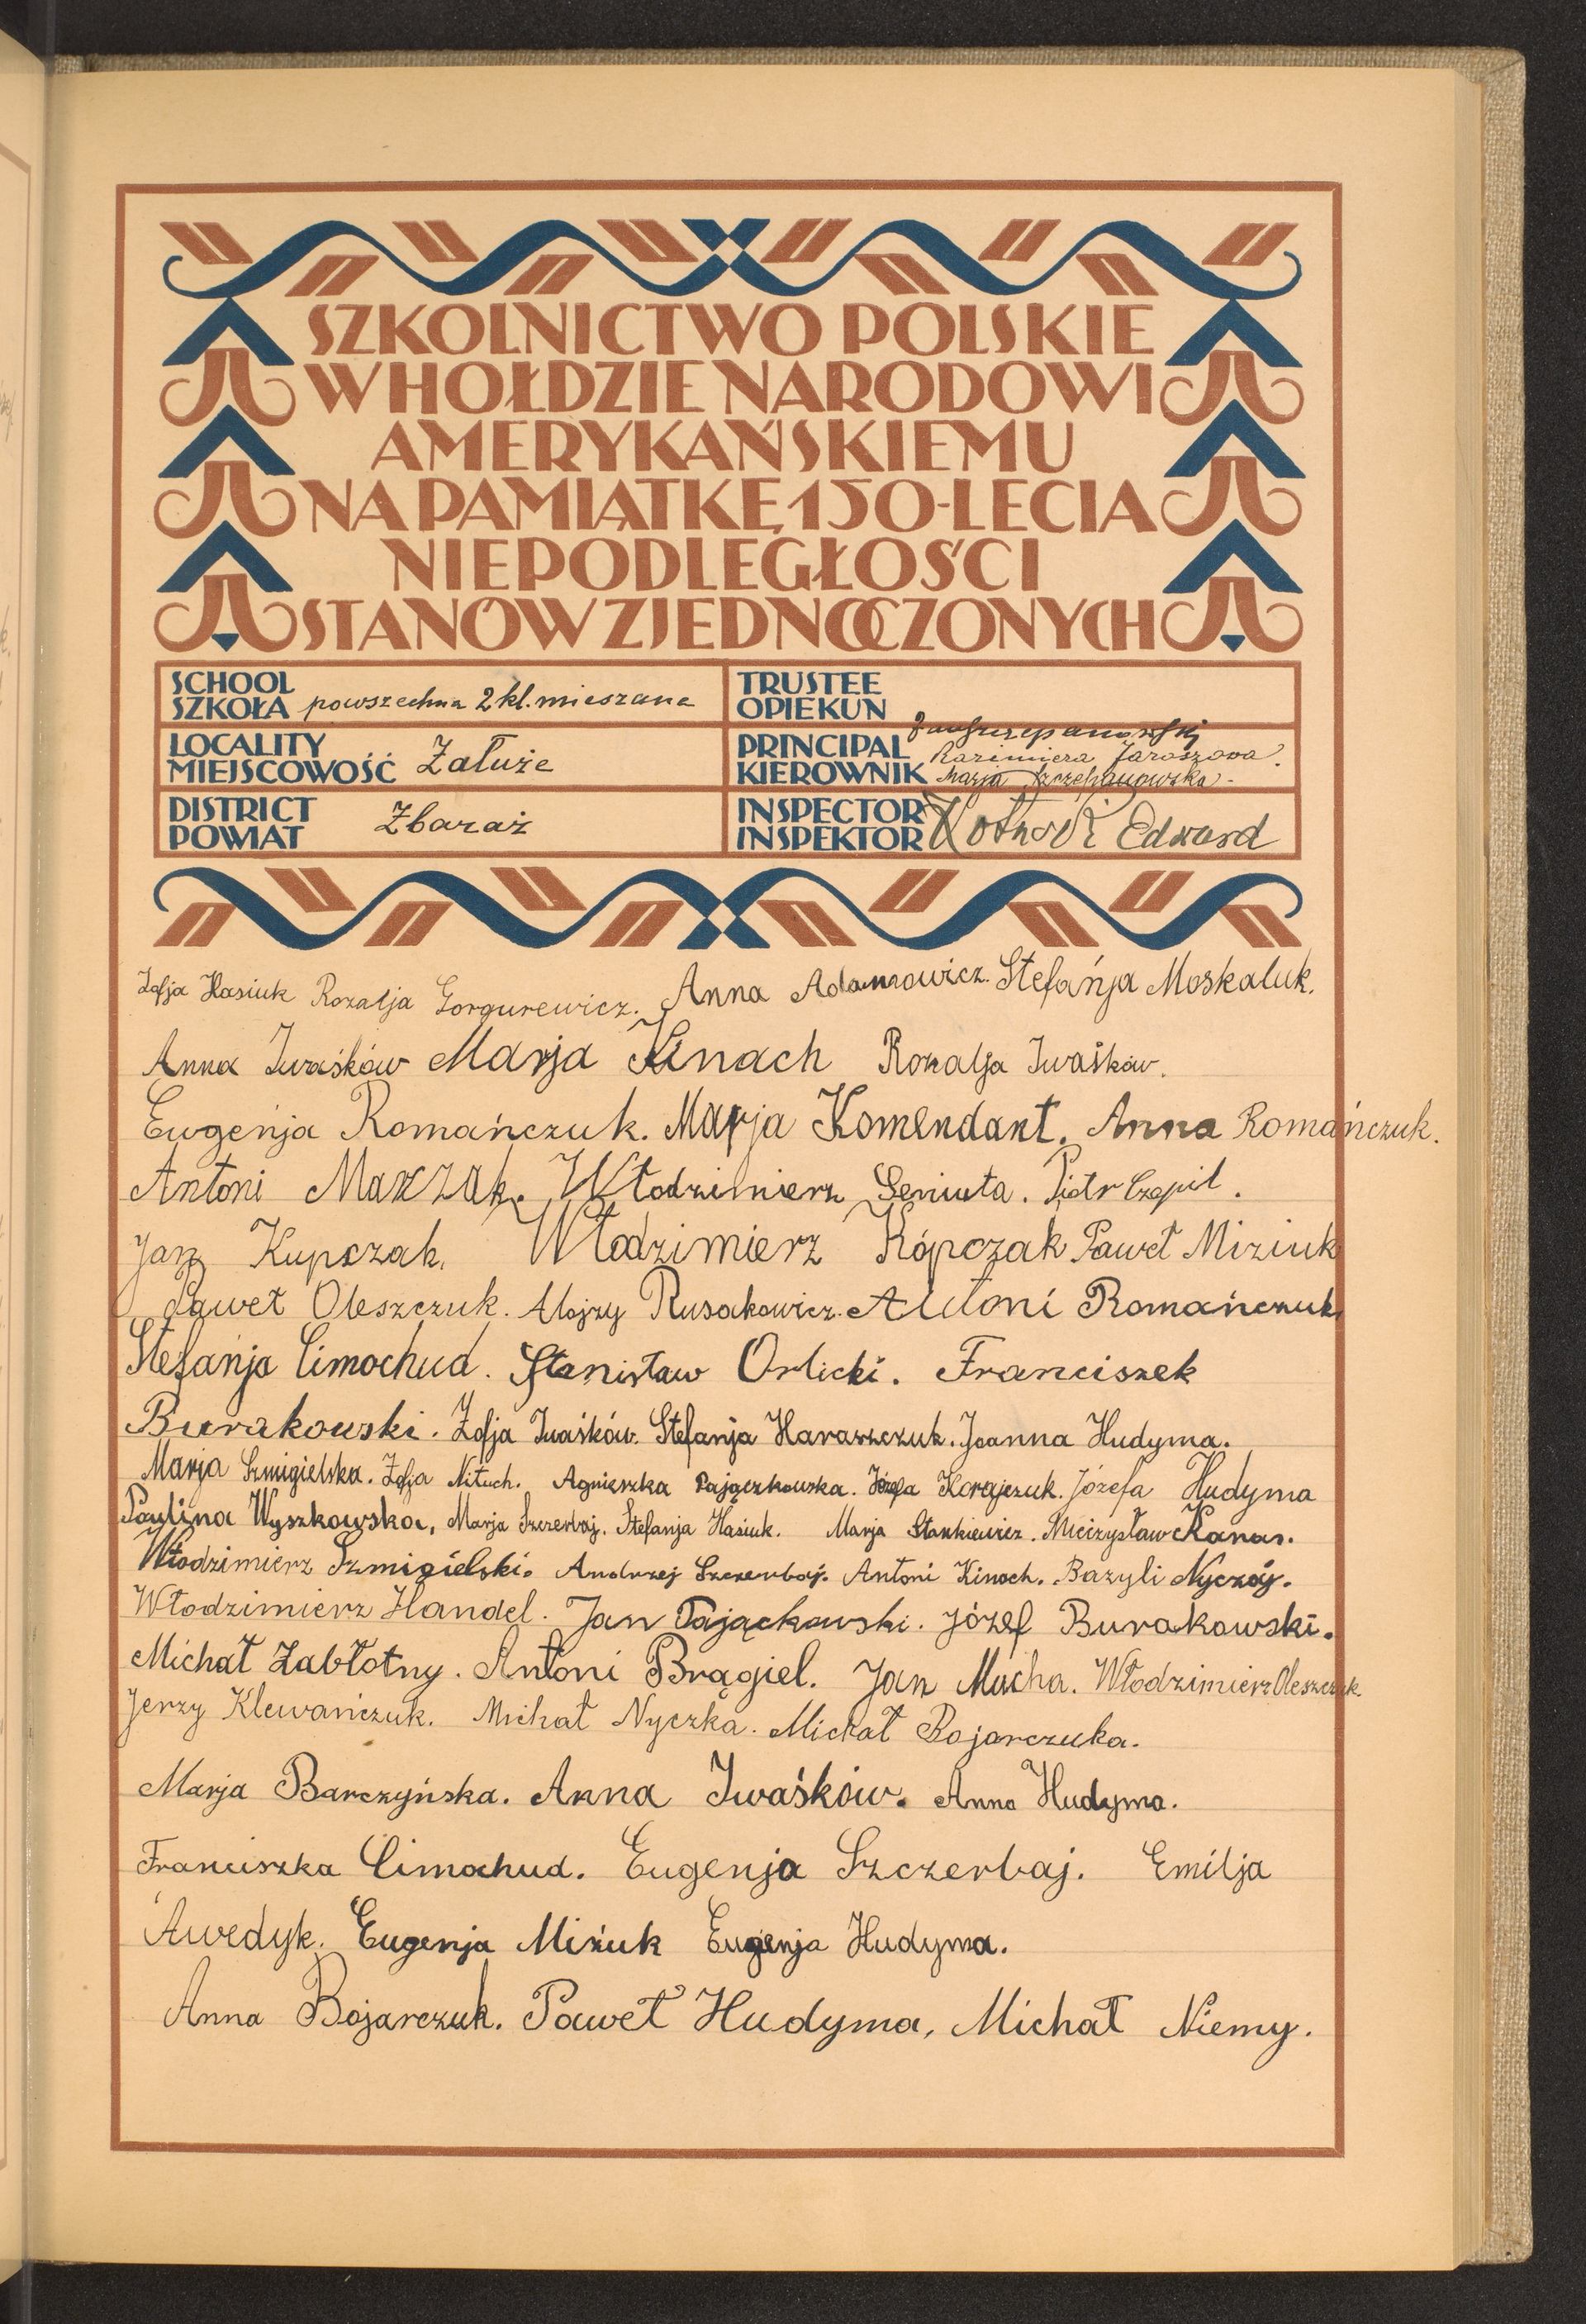 SZKOLNICTWO POLSKIE
W HOŁDZIE NARODOWI
AMERYKAŃSKIEMU
NA PAMIĄTKĘ 150-LECIA
NIEPODLEGŁOŚCI
STANÓW ZJEDNOCZONYCH
SCHOOL
SZKOŁA powszechna 2 kl. mieszana
TRUSTEE
OPIEKUN
LOCALITY
MIEJSCOWOŚĆ Załuże
Jan Szczepanowski
PRINCIPAL Kazimiera Jaroszowa.
KIEROWNIK Marja Szczepanowska
DISTRICT
POWIAT Zbaraż
INSPECTOR
INSPEKTOR Edward
Zofja Hasiuk Rozalja Gorgurewicz. Anna Adamowicz. Stefanja Moskaluk.
Anna Iwaśków Marja Kinach Rozalja Iwaśków.
Eugenja Romańczuk. Marja Komendant. Anna Romańczuk.
Antoni Maxzak. Włodzimierz Seniuta. Piotr Czepil.
Jan Kupczak. Włodzimierz Kópczak Paweł Miziuk
Paweł Oleszczuk. Alojzy Rusakowicz. Antoni Romańczuk
Stefanja Cimochud. Stanisław Orlicki. Franciszek
Burakowski. Zofja Iwaśków. Stefanja Haraszczuk. Joanna Hudyma.
Marja Szmigielska. Zofja Nituch. Agnieszka Pajączkowska. Józefa Korajczuk. Józefa Hudyma
Paulina Wyszkowska, Marja Szczerbaj. Stefanja Hasiuk. Marja Stankiewicz. Mieczysław Karas.
Włodzimierz Szmigielski. Andrzej Szczerbaj. Antoni Kinach. Bazyli Nyczaj.
Włodzimierz Handel. Jan Pająckowski. Józef Burakowski.
Michał Zabłotny. Antoni Brągiel. Jan Mucha. Włodzimierz Oleszczuk.
Jerzy Klewańczuk. Michał Nyczka. Michał Bojarczuka.
Marja Barczyńska. Anna Iwaśków. Anna Hudyma.
Franciszka Cimochud. Eugenja Szczerbaj. Emilja
Awedyk. Eugenja Miziuk Eugenja Hudyma.
Anna Bojarczuk. Paweł Hudyma, Michał Niemy.